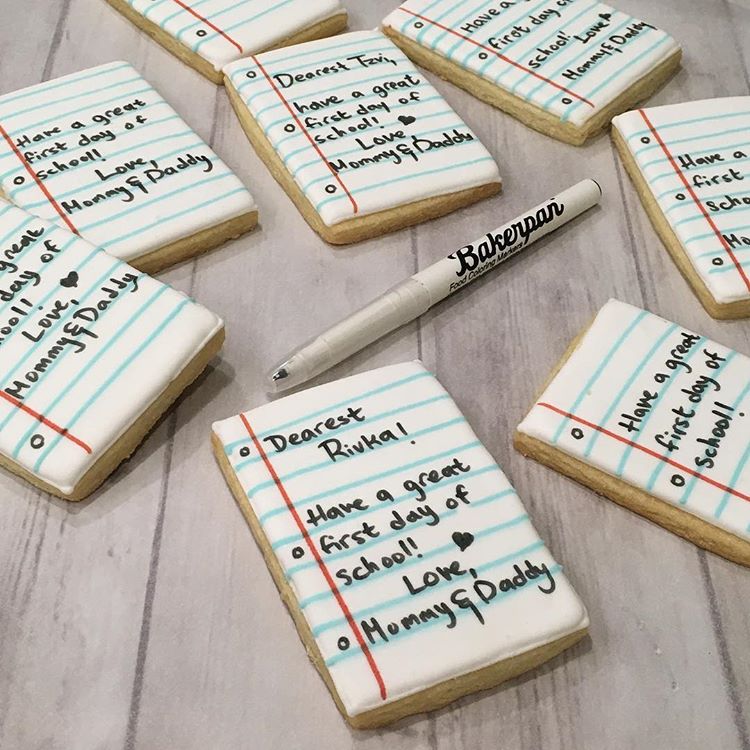 Have a
first day of
school!
Love
Mommy&Daddy
Have a great
first day of
school!
Love,
Mommy&Daddy
Dearest Tzvi,
have a great
first day of
school! ♥
Love,
Mommy&Daddy
Have a
first
schoo
Mom
great
day of
ool! ♥
Love,
Mommy&Daddy
Bakerpan
Food Coloring Markers
Have a great
first day of
school!
Dearest
Rivka!
Have a great
first day of
school! ♥
Love,
Mommy&Daddy